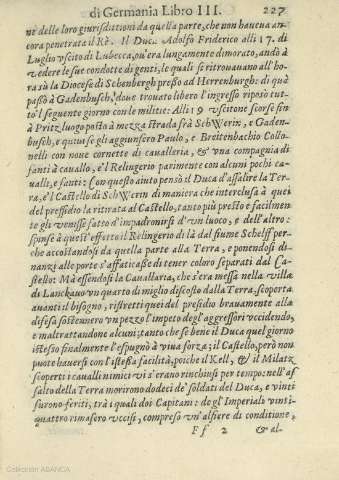 di Germania Libro III. 227
ni delle loro giurisditioni da quella parte, che non haueua an-
cora penetrata il Rè. Il Duca Adolfo Friderico alli 17. di
Luglio vscito di Lubecca, ou'era lungamente dimorato, andò à
vedere le sue condotte di genti, le quali si ritrouauano all'ho-
ra sù la Diocese di Schenbergh presso ad Herrenburgh: di quà
passò à Gadenbusch, doue trouato libero l'ingresso riposò tut-
to'l seguente giorno con le militie: Alli 19 vscitone scorse fin
à Pritz luogo posto à mezza strada frà SchWerin, e Gaden-
busch, e quiui se gli aggiunsero Paulo, e Breitenbachio Collo-
nelli con noue cornette di caualleria, & vna compagnia di
fanti à cauallo, è'l Relingerio parimente con alcuni pochi ca-
ualli, e fanti: Con questo aiuto pensò il Duca d'assalire la Ter-
ra, e'l Castello di SchWerin di maniera che interclusa à quei
del pressidio la ritirata al Castello, tanto più presto e facilmen-
te gli venisse fatto d'impadronirsi d'vn luoco, e dell'altro:
spinse à quest'effetto il Relingerio di là dal fiume Schelff per-
che accostandosi da quella parte alla Terra, e ponendosi di-
nanzi alle porte s'affaticasse di tener coloro separati dal Ca-
stello: Mà essendosi la Cauallaria, che s'era messa nella villa
di Lanckauo vn quarto di miglio discosto dalla Terra, scoperta
auanti il bisogno, ristretti quei del presidio brauamente alla
difesa sostennero vn pezzo l'impeto degl'aggressori vccidendo,
e maltrattandone alcuni; tanto che se bene il Duca quel giorno
istesso finalmente l'espugnò à viua forza; il Castello, però non
puote hauersi con l'istessa facilità, poiche il Kell, & il Milatz
scoperti i caualli nimici vi s'erano rinchiusi per tempo: nell'as
salto della Terra morirono dodeci de' soldati del Duca, e vinti
furono feriti, trà i quali doi Capitani: degl'Imperiali vinti-
quattro rimasero vccisi, compreso vn'alfiere di conditione,
Ff 2 & al-
Colección ABANCA